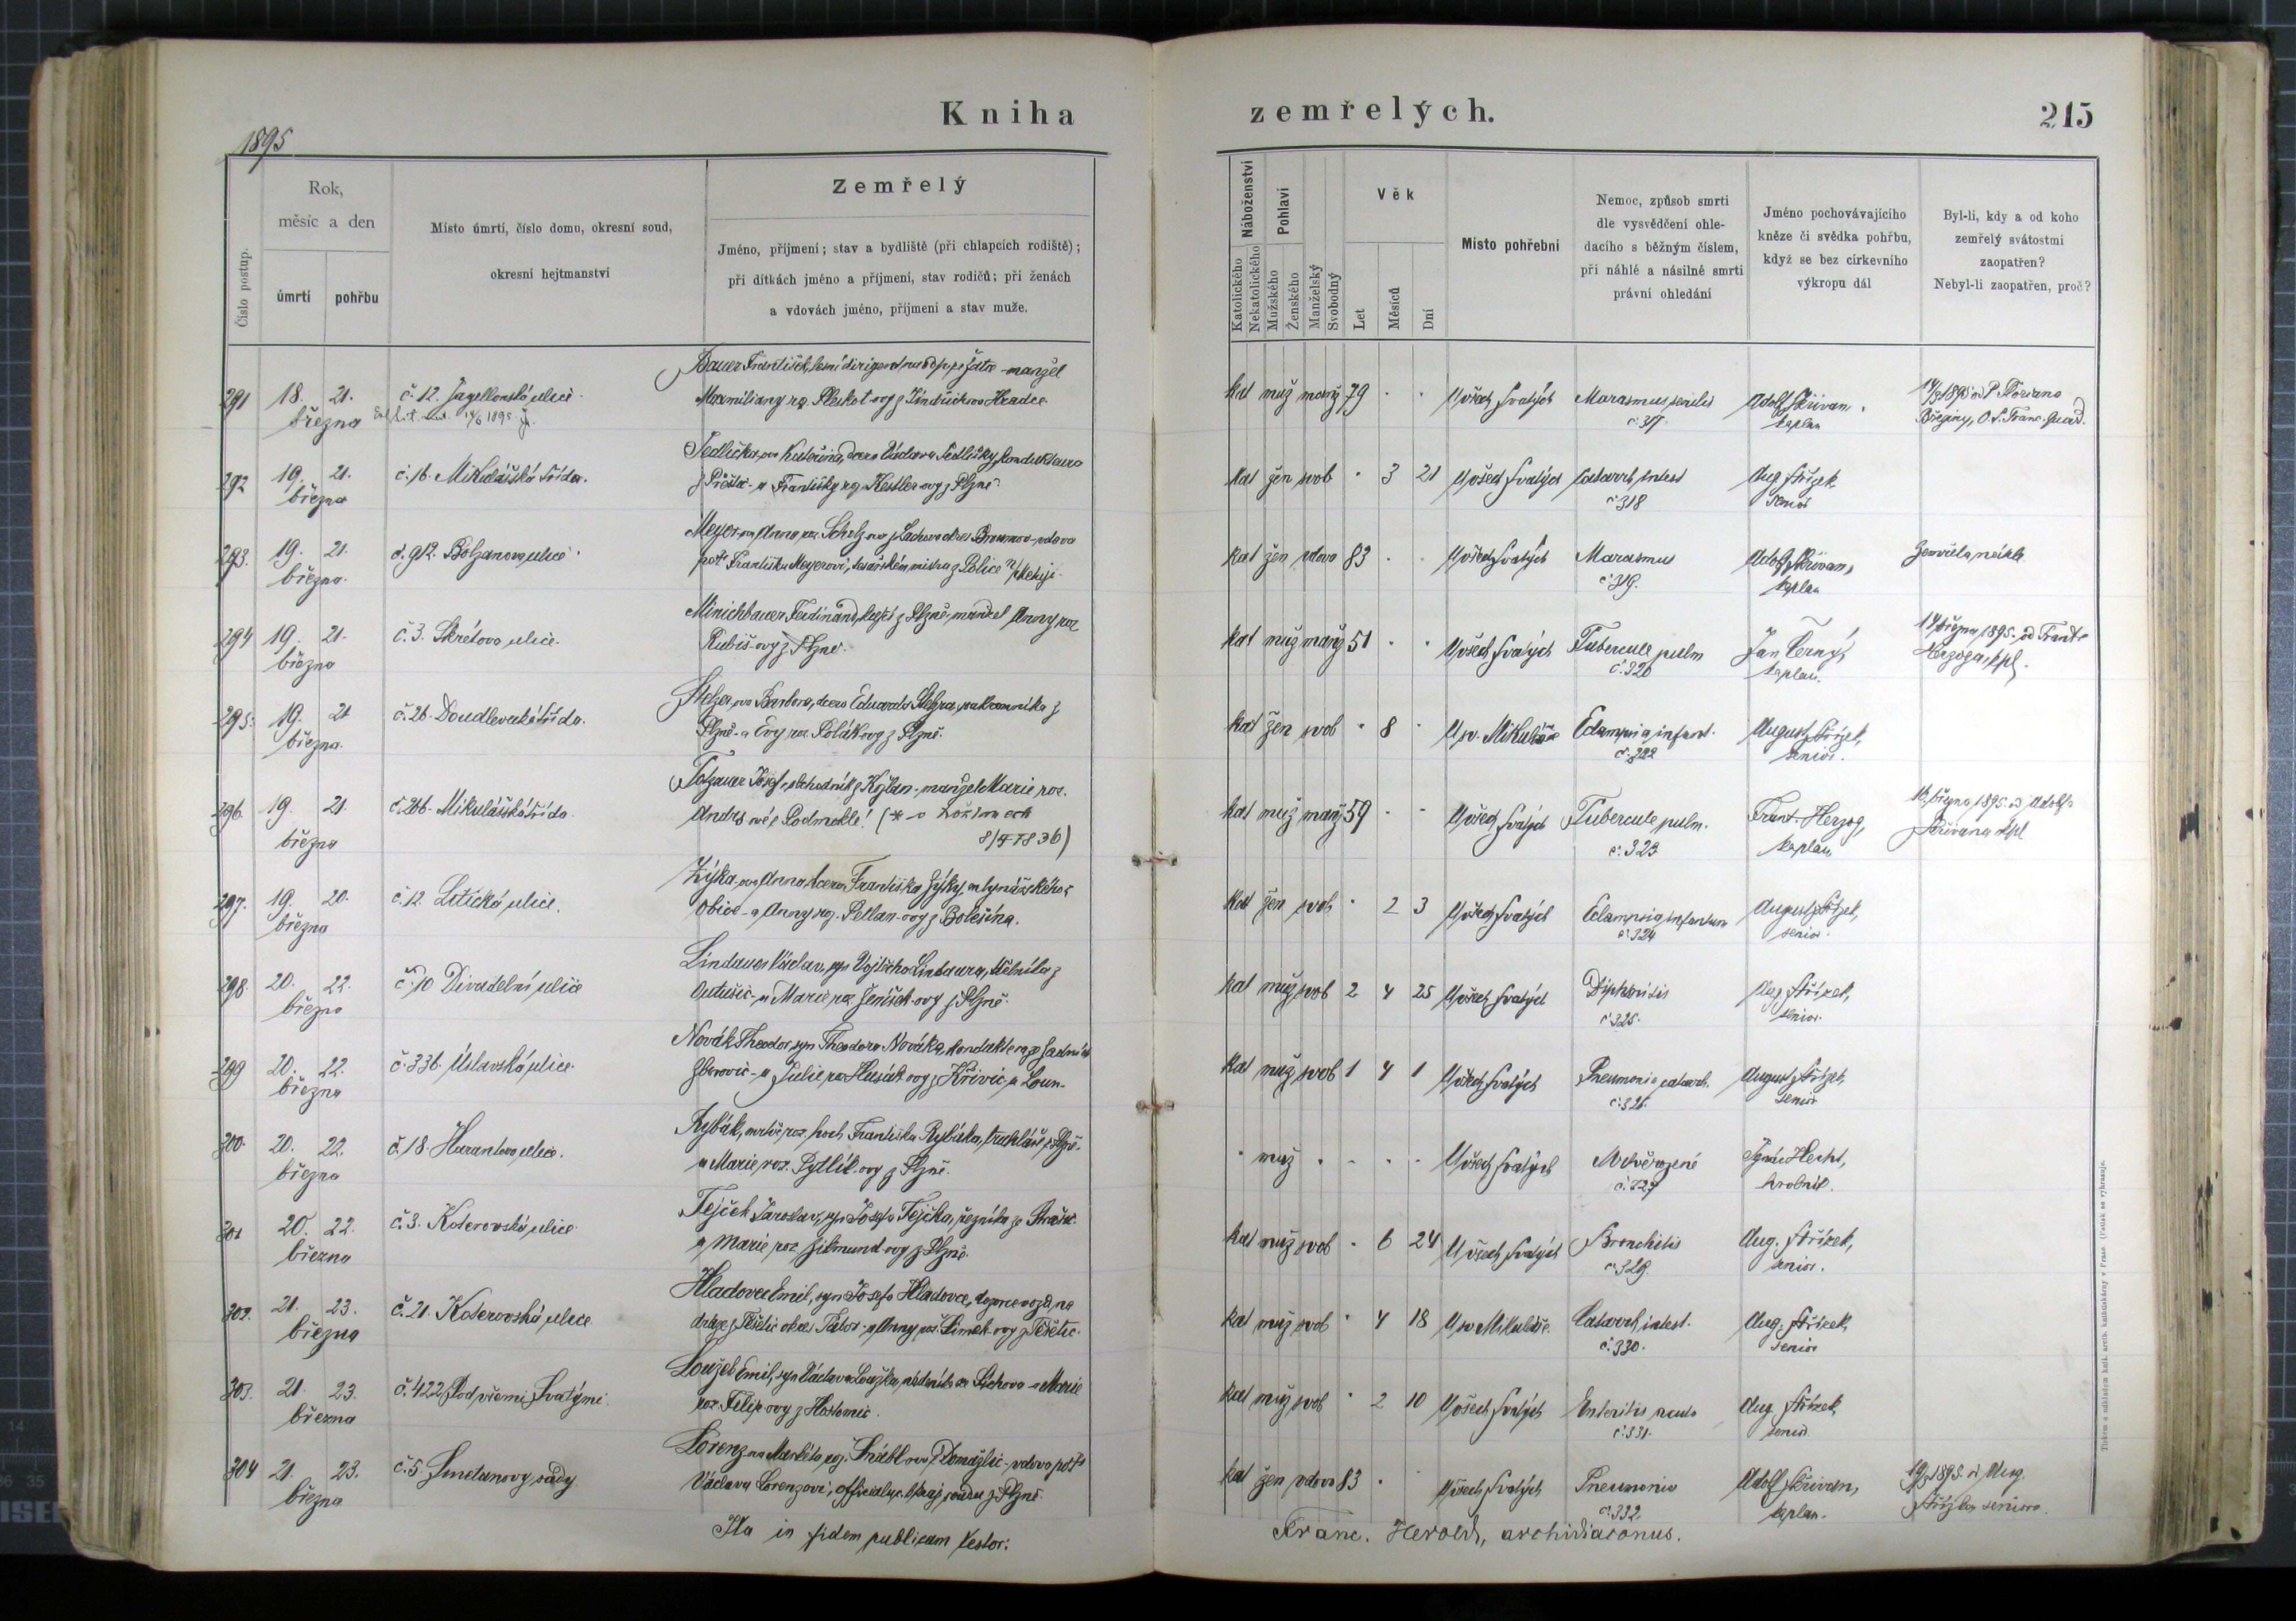 Kniha
zemřelých.
215
1895
Číslo postup.
Rok,
měsíc a den
úmrtí
pohřbu
Místo úmrtí, číslo domu, okresní soud,
okresní hejtmanství
Zemřelý
Jméno, příjmení; stav a bydliště (při chlapcích rodiště);
při dítkách jméno a příjmení, stav rodičů; při ženách
a vdovách jméno, příjmení a stav muže.
Náboženství
Katolického
Nekatolického
Pohlaví
Mužského
Ženského
Manželský
Svobodný
Věk
Let
Měsíců
Dní
Místo pohřební
Nemoc, způsob smrti
dle vysvědčení ohle-
dacího s běžným číslem,
při náhlé a násilné smrti
právní ohledání
Jméno pochovávajícího
kněze či svědka pohřbu,
když se bez církevního
výkropu dál
Byl-li, kdy a od koho
zemřelý svátostmi
zaopatřen?
Nebyl-li zaopatřen, proč?
291 18. 21. č. 12. Jagellonská ulice.
března
Bauer František, lesní dirigent, manžel
Maxmiliany roz. Pleskot-ovy z Jindřichova Hradce.
kat muž manž 79 U všech Svatých Marasmus senilis Adolf Skřivan,
č. 317. kaplan
292 19. 21. č. 16. Mikulášská třída.
března
Jedlička-ova Kateřina, dcera Václava Jedličky, kondukteura
z Přeštic a Františky roz. Kestler-ovy z Plzně.
kat žen svob 3 21 U všech Svatých Catarrh intest Aug. Střízek
č 318 senior
293. 19. 21. č. 912. Bolzanova ulice.
března.
Meyer-ova Anna roz. Scholz-ova vdova
po Františku Meyerovi, z Police n/Metují.
kat žen vdova 83 U všech Svatých Marasmus Adolf Skřivan,
č 319. kaplan
Zemřela náhle.
294 19. 21. č. 3. Škrétova ulice.
března
Minichbauer Ferdinand, z Plzně, manžel Anny roz.
Rubiš-ovy z Plzně.
kat muž manž 51 U všech Svatých Tubercule pulm Jan Černý,
č. 320 kaplan.
17. března 1895. od Frant.
Herzoga, kpl.
295. 19. 21 č. 26. Doudlevecká třída.
března.
Stelzer-ova Barbora, dcera Eduarda Stelzra, soukenníka z
Plzně a Evy roz. Polák-ovy z Plzně.
kat žen svob 8 U sv. Mikuláše Eclampsia infant. August Střízek,
č. 322 senior.
296. 19. 21. č. 266. Mikulášská třída.
března
Totzauer Josef, obchodník z Kyšan, manžel Marie roz.
Andrs-ové z Podmokle! (*
8/5 1836)
kat muž manž 59 U všech Svatých Tubercule pulm. Frant. Herzog,
č. 323 kaplan
16. března 1895. od Adolfa
Skřivana, kpl
297. 19. 20. č. 12. Litická ulice.
března
Zýka-ova Anna, dcera Františka Zýky, mlynářského z
Obice a Anny roz. Petlan-ovy z Bolešína.
kat žen svob 2 3 U všech Svatých Eclampsia infantum August Střízek,
č. 324 senior.
298. 20. 22. č. 10 Divadelní ulice
března
Lindauer Václav, syn Vojtěcha Lindaura, dělníka z
a Marie roz. Jeníšek-ovy z Plzně.
kat muž svob 2 4 25 U všech Svatých Diphteritis Aug. Střízek,
č 325. senior.
299 20. 22. č. 336. Úslavská ulice.
března
Novák Theodor, syn Theodora Nováka, kondukteura
a Julie roz. Husák-ovy z Křivic, u Loun.
kat muž svob 1 4 1 U všech Svatých Pneumonia catarrh. August Střízek,
č. 326. senior
300. 20. 22. č. 18. Harantova ulice.
března
Rybák, mrtvě roz. hoch Františka Rybáka, truhláře z Plzně.
a Marie roz. Pytlík-ovy z Plzně.
muž U všech Svatých Mrtvě rozené Ignác Hecht,
č. 327 hrobník.
301 20. 22. č. 3. Koterovská ulice.
března
Tejček Jaroslav, syn Josefa Tejčka, řezníka ze
a Marie roz. Zikmund-ovy z Plzně.
kat muž svob 6 24 U všech Svatých Bronchitis Aug. Střízek,
č 329. senior.
302. 21. 23. č. 21. Koterovská ulice.
března
Hladovec Emil, syn Josefa Hladovce, na
dráze z Těšetic okres Tábor a Anny roz. Šimek-ovy z Těšetic.
kat muž svob 4 18 U sv Mikuláše. Catarrh intest. Aug. Střízek,
č. 330. senior
303. 21. 23. č. 422 Pod všemi Svatými.
března
Loužek Emil, syn Václava Loužka, nádeníka ze a Marie
roz. Filip-ovy z Hostomic.
kat muž svob 2 10 U všech Svatých Enteritis acuta Aug. Střízek,
č. 331. senior.
304 21. 23. č. 5. Smetanovy sady.
března
Lorenz-ova Markéta roz. z Domažlic, vdova po
Václavu Lorenzovi, officiálu c. k. kraj. soudu z Plzně.
kat žen vdova 83 U všech Svatých Pneumonia Adolf Skřivan,
č. 332 kaplan.
19/3 1895. od Aug.
Střízka, seniora.
Ita in fidem publicam testor:
Franc. Herold, archidiaconus.